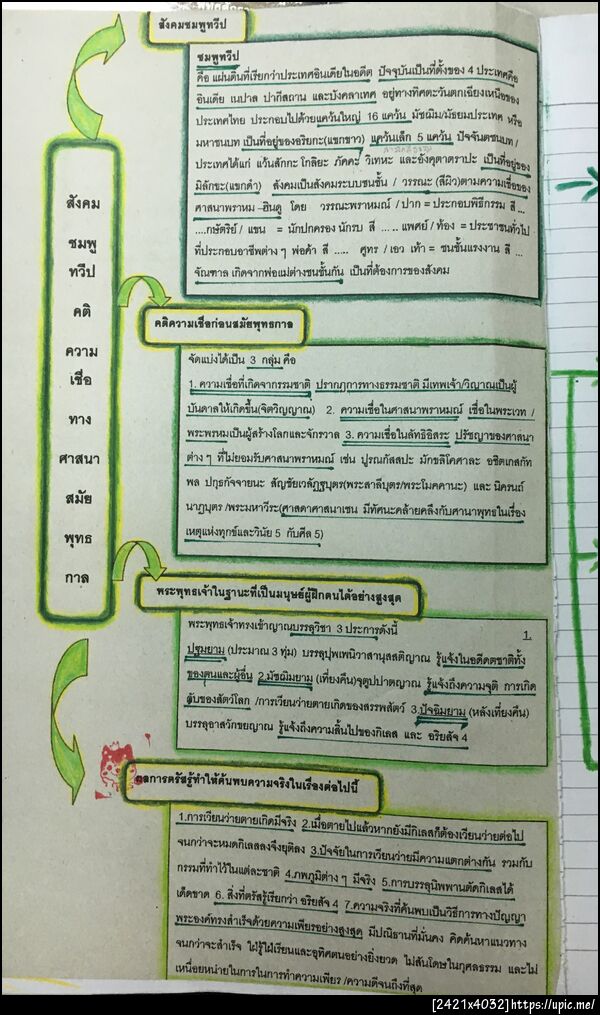 สังคมชมพูทวีป
ชมพูทวีป
คือ แผ่นดินที่เรียกว่าประเทศอินเดียในอดีต ปัจจุบันเป็นที่ตั้งของ 4 ประเทศคือ
อินเดีย เนปาล ปากีสถาน และบังคลาเทศ อยู่ทางทิศตะวันตกเฉียงเหนือของ
ประเทศไทย ประกอบไปด้วยแคว้นใหญ่ 16 แคว้น มัชฌิม/มัธยมประเทศ หรือ
มหาชนบท เป็นที่อยู่ของอริยกะ(แขกขาว) แคว้นเล็ก 5 แคว้น ปัจจันตชนบท/
ประเทศได้แก่ แว้นสักกะ โกลิยะ ภัคคะ วิเทหะ และอังคุตตราปะ เป็นที่อยู่ของ
มิลักขะ(แขกดำ) สังคมเป็นสังคมระบบชนชั้น / วรรณะ (สีผิว)ตามความเชื่อของ
ศาสนาพราหม -ฮินดู โดย วรรณะพราหมณ์ / ปาก = ประกอบพิธีกรรม สี ...
....กษัตริย์ / แขน = นักปกครอง นักรบ สี ... .. แพศย์ / ท้อง = ประชาชนทั่วไป
ที่ประกอบอาชีพต่าง ๆ พ่อค้า สี ..... ศูทร / เอว เท้า = ชนชั้นแรงงาน สี ...
จัณฑาล เกิดจากพ่อแม่ต่างชนชั้นกัน เป็นที่ต้องการของสังคม
สังคม
ชมพู
ทวีป
คติ
ความ
เชื่อ
ทาง
ศาสนา
สมัย
พุทธ
กาล
คติความเชื่อก่อนสมัยพุทธกาล
จัดแบ่งได้เป็น 3 กลุ่ม คือ
1. ความเชื่อที่เกิดจากธรรมชาติ ปรากฎการทางธรรมชาติ มีเทพเจ้า/วิญาณเป็นผู้
บันดาลให้เกิดขึ้น(จิตวิญญาณ) 2. ความเชื่อในศาสนาพราหมณ์ เชื่อในพระเวท /
พระพรหมเป็นผู้สร้างโลกและจักรวาล 3. ความเชื่อในลัทธิอิสระ ปรัชญาของศาสนา
ต่าง ๆ ที่ไม่ยอมรับศาสนาพราหมณ์ เช่น ปูรณกัสสปะ มักขลิโคศาละ อชิตเกสกัท
พล ปกุธกัจจายนะ สัญชัยเวลัฏฐบุตร(พระสาลีบุตร/พระโมคคานะ) และ นิครนถ์
นาฎบุตร /พระมหาวีระ(ศาสดาศาสนาเชน มีทัศนะคล้ายคลึงกับศานาพุทธในเรื่อง
เหตุแห่งทุกข์และวินัย 5 กับศีล 5)
พระพุทธเจ้าในฐานะที่เป็นมนุษย์ผู้ฝึกตนได้อย่างสูงสุด
พระพุทธเจ้าทรงเข้าญาณบรรลุวิชา 3 ประการดังนี้ 1.
ปฐมยาม (ประมาณ 3 ทุ่ม) บรรลุปุพเพนิวาสานุสสติญาณ รู้แจ้งในอดีตชาติทั้ง
ของตนและผู้อื่น 2.มัชฌิมยาม (เที่ยงคืน)จุตูปปาตญาณ รู้แจ้งถึงความจุติ การเกิด
ดับของสัตว์โลก /การเวียนว่ายตายเกิดของสรรพสัตว์ 3.ปัจฉิมยาม (หลังเที่ยงคืน)
บรรลุอาสวักขยญาณ รู้แจ้งถึงความสิ้นไปของกิเลส และ อริยสัจ 4
ผลการตรัสรู้ทำให้ค้นพบความจริงในเรื่องต่อไปนี้
1.การเวียนว่ายตายเกิดมีจริง 2.เมื่อตายไปแล้วหากยังมีกิเลสก็ต้องเวียนว่ายต่อไป
จนกว่าจะหมดกิเลสลงจึงยุติลง 3.ปัจจัยในการเวียนว่ายมีความแตกต่างกัน รวมกับ
กรรมที่ทำไว้ในแต่ละชาติ 4.ภพภูมิต่าง ๆ มีจริง 5.การบรรลุนิพพานตัดกิเลสได้
เด็ดขาด 6. สิ่งที่ตรัสรู้เรียกว่า อริยสัจ 4 7.ความจริงที่ค้นพบเป็นวิธีการทางปัญญา
พระองค์ทรงสำเร็จด้วยความเพียรอย่างสูงสุด มีปณิธานที่มั่นคง คิดค้นหาแนวทาง
จนกว่าจะสำเร็จ ใฝ่รู้ใฝ่เรียนและอุทิศตนอย่างยิ่งยวด ไม่สันโดษในกุศลธรรม และไม่
เหนื่อยหน่ายในการในการทำความเพียร /ความดีจนถึงที่สุด
[2421x4032]https://upic.me/